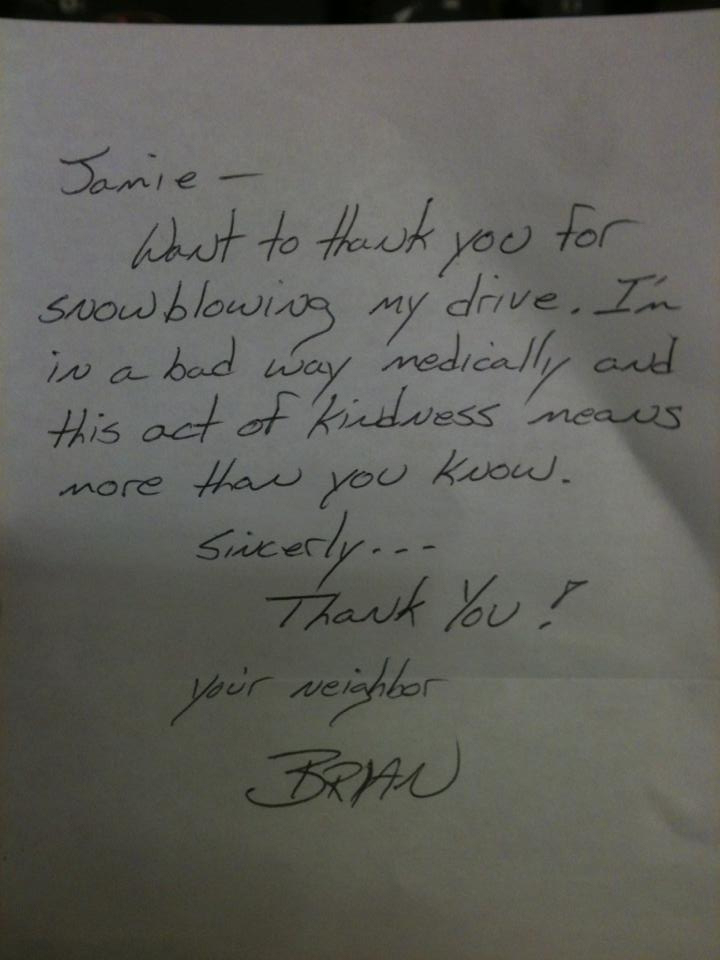 Jamie —
Want to thank you for
snowblowing my drive. I'm
in a bad way medically and
this act of kindness means
more than you know.
Sincerly...
Thank You!
your neighbor
BRIAN